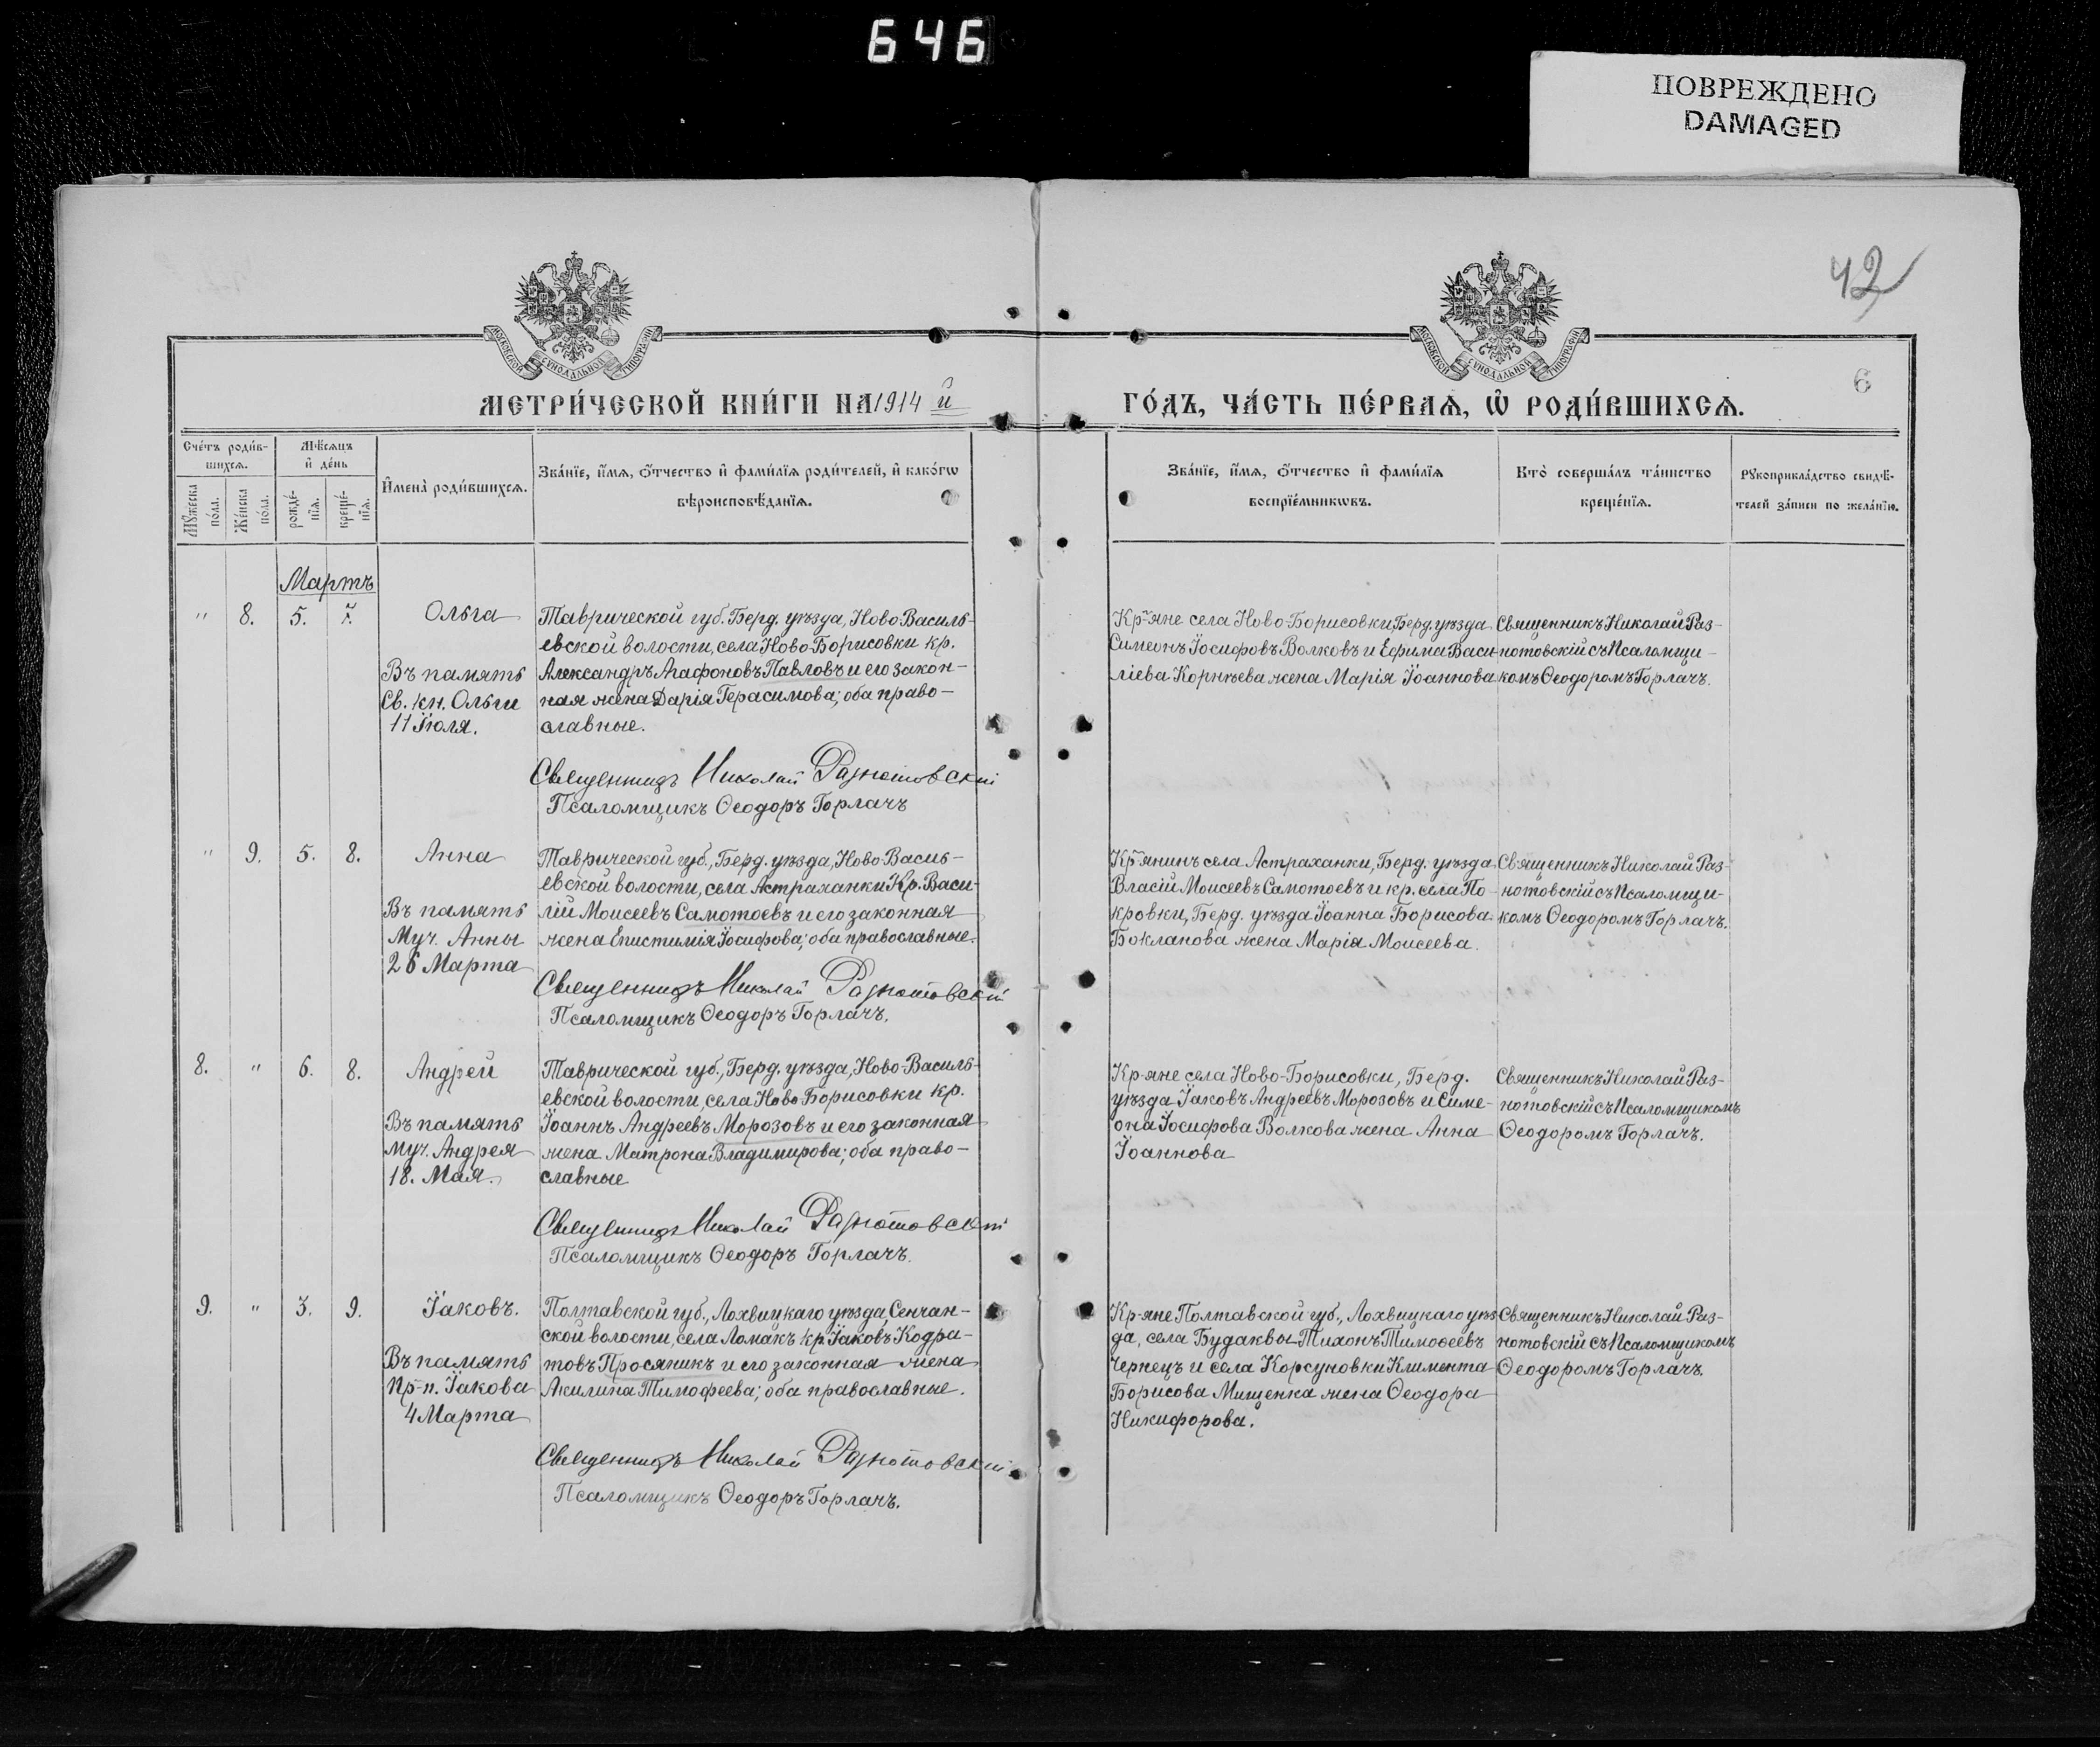 646
ПОВРЕЖДЕНО
DAMAGED
42
6
МОСКОВСКОЙ СѴНОДАЛЬНОЙ ТИПОГРАФІИ
МОСКОВСКОЙ СѴНОДАЛЬНОЙ ТИПОГРАФІИ
МЕТРИ́ЧЕСКОЙ КНИ́ГИ НА 1914 й
ГО́ДЪ, ЧА́СТЬ ПЕ́РВАѦ, Ѡ҆ РОДИ́ВШИХСѦ.
Сче́тъ роди́в-
шихсѧ.
Мѣ́сѧцъ
и҆ де́нь
Мꙋ́жеска
по́ла.
Же́нска
по́ла.
рожде́-
нїѧ.
креще́-
нїѧ.
И҆мена̀ роди́вшихсѧ.
Зва́нїе, и҆́мѧ, ѻ҆́тчество и҆ фами́лїѧ роди́телей, и҆ како́гѡ
вѣроисповѣ́данїѧ.
Зва́нїе, и҆́мѧ, ѻ҆́тчество и҆ фами́лїѧ
воспрїе́мникѡвъ.
Кто̀ соверша́лъ та́инство
креще́нїѧ.
Рꙋкоприкла́дство свидѣ́-
телей за́писи по жела́нїю.
Мартъ
" 8. 5. 7.
Ольга
Въ память
Св. кн. Ольги
11 Іюля.
Таврической губ. Берд. уѣзда, Ново-Василь-
евской волости, села Ново-Борисовки кр.
Александръ Агафоновъ Павловъ и его закон-
ная жена Дарія Герасимова; оба право-
славные.
Священникъ Николай Разнотовскій
Псаломщикъ Ѳеодоръ Горлачъ
Кр-яне села Ново-Борисовки, Берд. уѣзда
Симеонъ Іосифовъ Волковъ и Ефима Васи-
ліева Корнѣева жена Марія Іоаннова
Священникъ Николай Раз-
нотовскій съ Псаломщи-
комъ Ѳеодоромъ Горлачъ.
" 9. 5. 8.
Анна
Въ память
Муч. Анны
26 Марта
Таврической губ., Берд. уѣзда, Ново-Васиь-
евской волости, села Астраханки Кр. Васи-
лій Моисеевъ Самотоевъ и его законная
жена Епистимія Іосифова; оба православные.
Священникъ Николай Разнотовскій
Псаломщикъ Ѳеодоръ Горлачъ.
Кр-янинъ села Астраханки, Берд. уѣзда
Власій Моисеевъ Самотоевъ и кр. села По-
кровки, Берд. уѣзда Іоанна Борисова
Бокланова жена Марія Моисеева.
Священникъ Николай Раз-
нотовскій съ Псаломщи-
комъ Ѳеодоромъ Горлачъ.
8. " 6. 8.
Андрей
Въ память
муч. Андрея
18. Мая.
Таврической губ., Берд. уѣзда, Ново-Василь-
евской волости, села Ново Борисовки кр.
Іоаннъ Андреевъ Морозовъ и его законная
жена Матрона Владимирова; оба право-
славные
Священникъ Николай Разнотовскій
Псаломщикъ Ѳеодоръ Горлачъ.
Кр-яне села Ново-Борисовки, Берд.
уѣзда Іаковъ Андреевъ Морозовъ и Симе-
она Іосифова Волкова жена Анна
Іоаннова
Священникъ Николай Раз-
нотовскій съ Псаломщикомъ
Ѳеодоромъ Горлачъ.
9. " 3. 9.
Іаковъ.
Въ память
Пр-п. Іакова
4 Марта
Полтавской губ., Лохвицкаго уѣзда, Сенчан-
ской волости, села Ломакъ кр. Іаковъ Кодра-
товъ Просяникъ и его законная жена
Акилина Тимофеева; оба православные.
Священникъ Николай Разнотовскій
Псаломщикъ Ѳеодоръ Горлачъ.
Кр-яне Полтавской губ., Лохвицкаго уѣз
да, села Будаквы Тихонъ Тимоѳеевъ
Чернецъ и села Корсуновки Климента
Борисова Мищенка жена Ѳеодора
Никифорова.
Священникъ Николай Раз-
нотовскій съ Псаломщикомъ
Ѳеодоромъ Горлачъ.